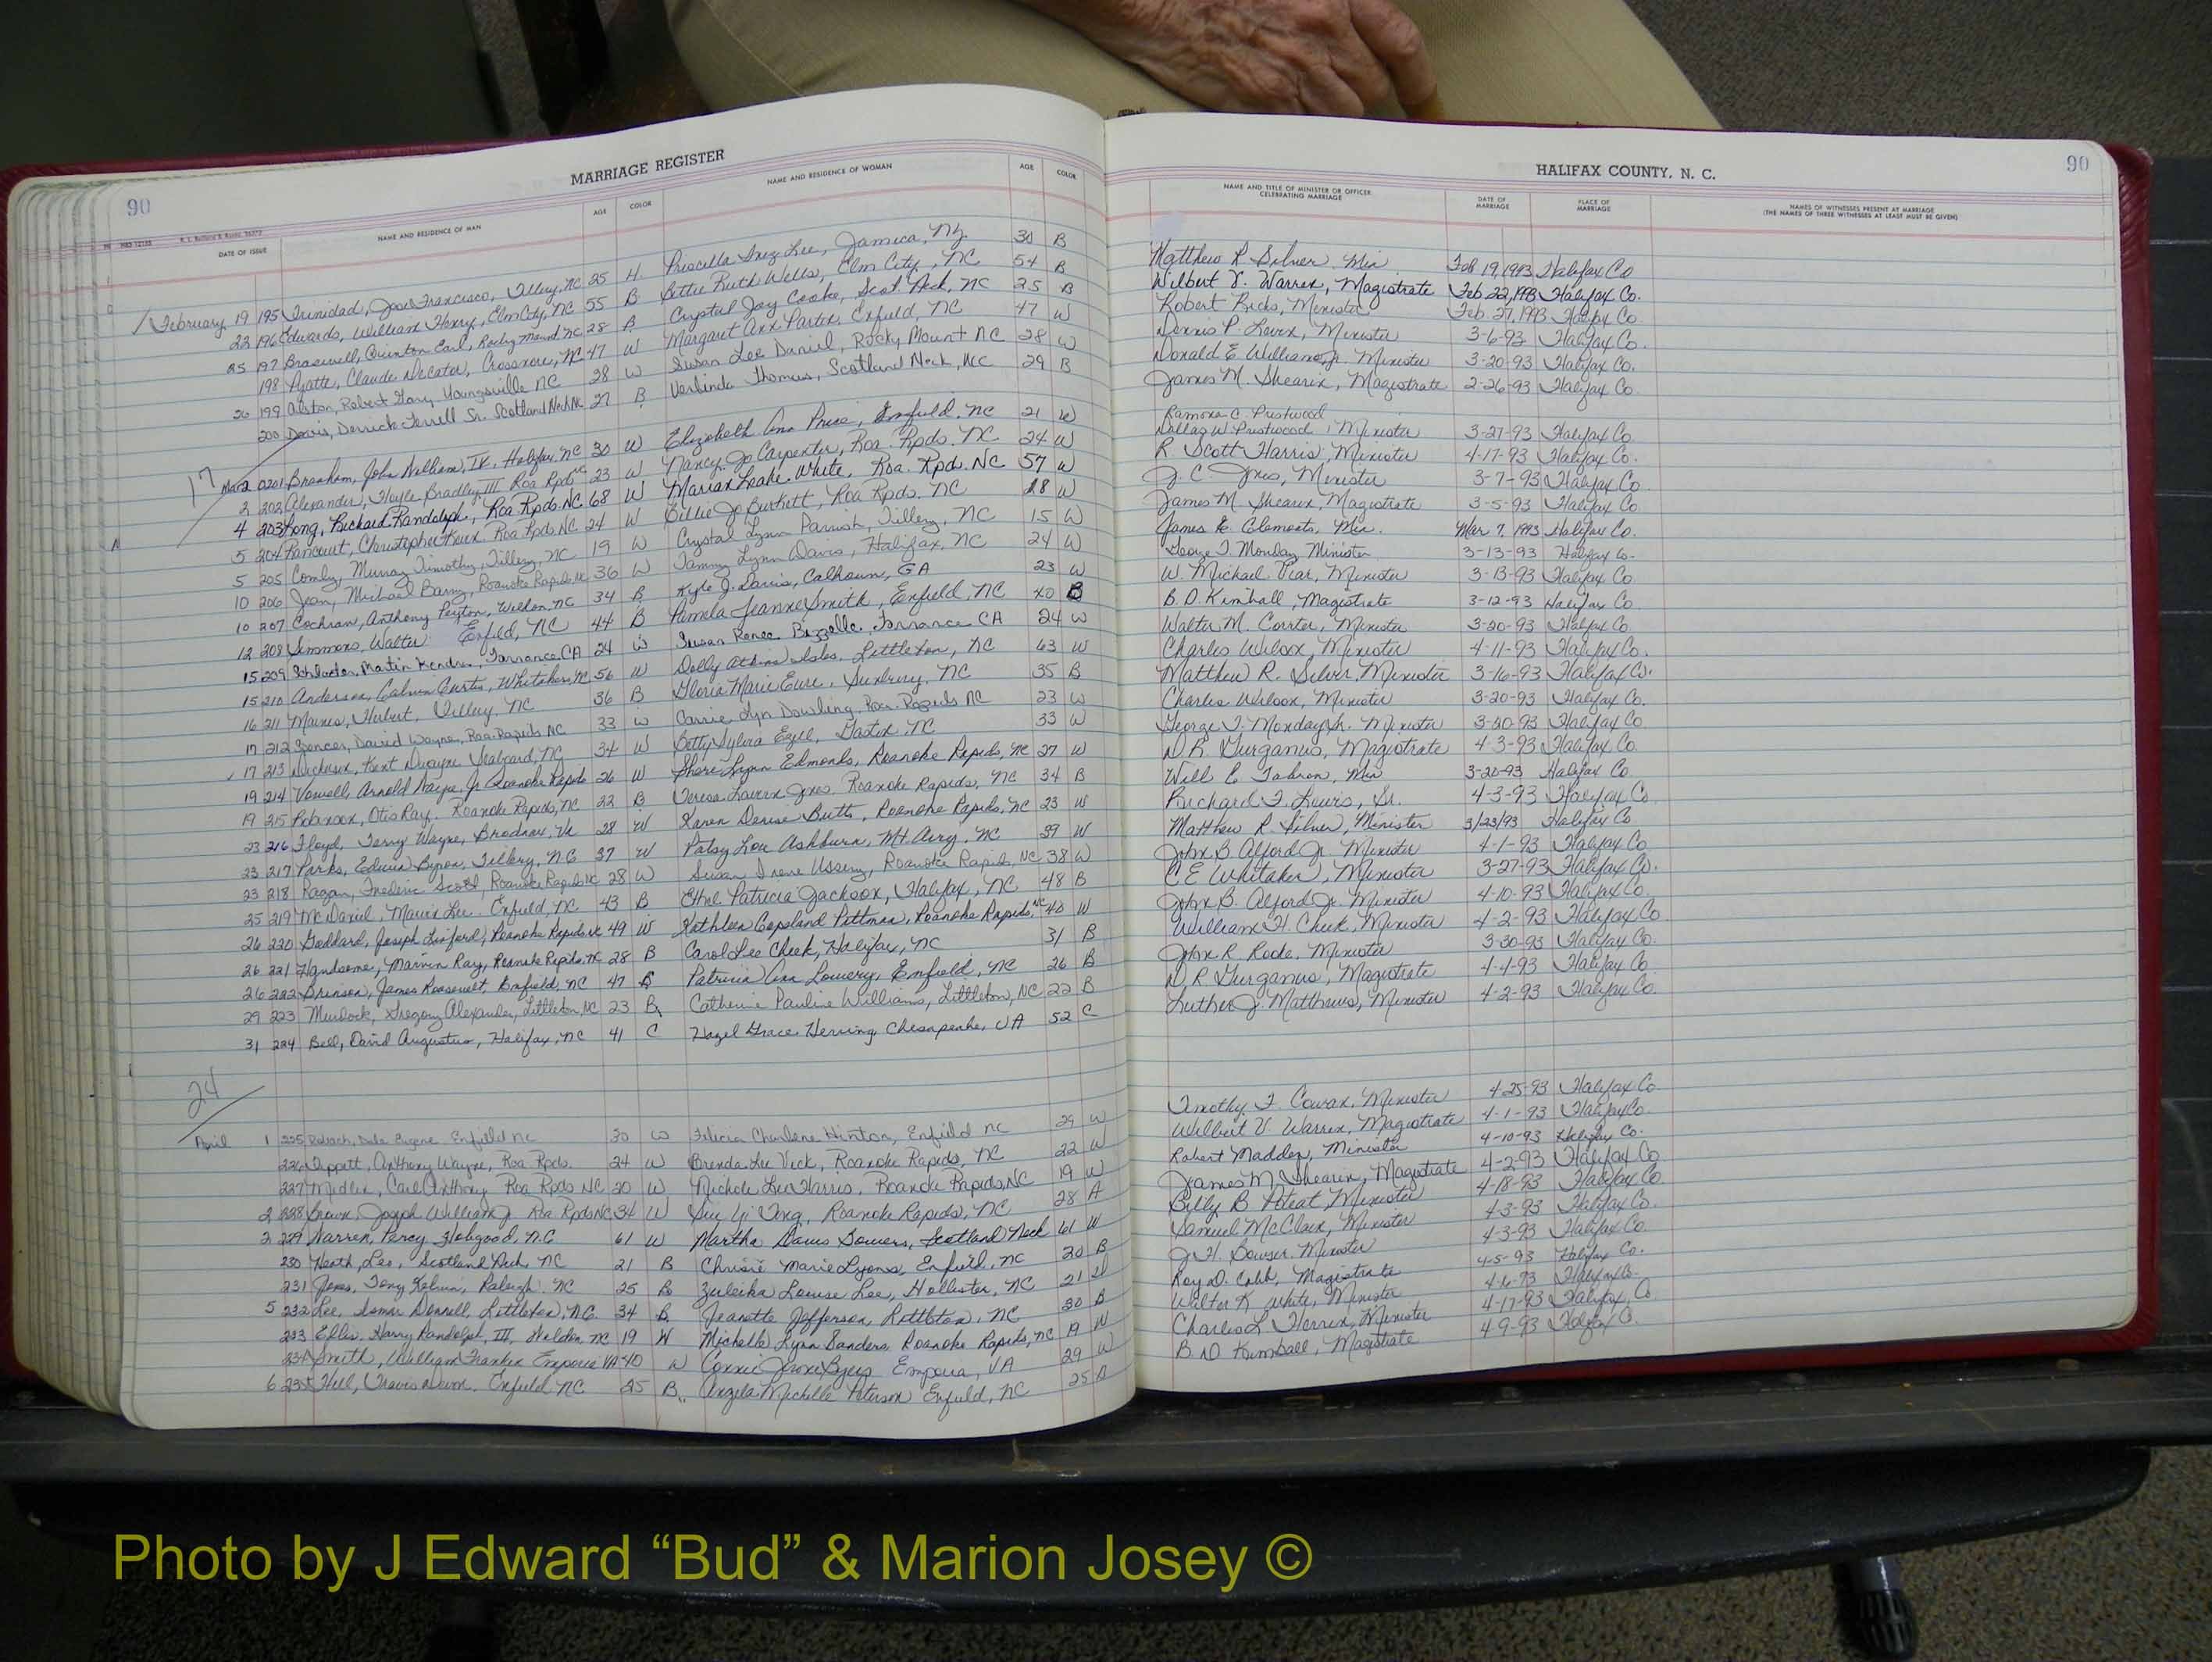 MARRIAGE REGISTER
90
DATE OF ISSUE NAME AND RESIDENCE OF MAN AGE COLOR NAME AND RESIDENCE OF WOMAN AGE COLOR
February 19 195 Trinidad, Francisco, Tillery, NC 25 H Priscilla Inez Lee, Jamica, NY 30 B
22 196 Edwards, William Henry, Elm City, NC 55 B Bettie Ruth Wells, Elm City, NC 54 B
25 197 Braswell, Quinton Earl, Rocky Mount NC 28 B Crystal Joy Cooke, Scot Neck, NC 25 B
198 Pyatte, Claude Decator, Crossnore, NC 47 W Margaret Ann Parker, Enfield, NC 47 W
26 199 Alston, Robert Gary Youngsville NC 28 W Susan Lee Daniel, Rocky Mount NC 28 W
200 Davis, Derrick Terrell Sr. Scotland Neck NC 27 B Verlinda Thomas, Scotland Neck, NC 29 B
17
Mar 2 0201 Branham, John William, IV, Halifax, NC 30 W Elizabeth Ann Price, Enfield, NC 21 W
2 202 Alexander, Hoyle Bradley, III Roa Rpds NC 23 W Nancy Jo Carpenter, Roa. Rpds. NC 24 W
4 203 Long, Richard Randolph, Roa Rpds. NC 68 W Marian Leake White, Roa. Rpd. NC 57 W
5 204 Rancourt, Christopher Roa Rpds. NC 24 W Billie Jo Burkett, Roa Rpds. NC 18 W
5 205 Murray Timothy, Tillery, NC 19 W Crystal Lynn Parrish, Tillery, NC 15 W
10 206 Jean, Michael Barry, Roanoke Rapids NC 36 W Tammy Lynn Davis, Halifax, NC 24 W
10 207 Cochran, Anthony Peyton, Weldon, NC 34 B Kyle J. Davis, Calhoun, GA 23 W
12 208 Simmons, Walter Enfield, NC 44 B Pamela Jeanne Smith, Enfield, NC 40 B
15 209 Martin Torrance, CA 24 W Susan Renee Torrance CA 24 W
15 210 Anderson, Calvin Curtis, Whitakers, NC 56 W Dolly Atkins Littleton, NC 63 W
16 211 Maines, Hubert, Tillery, NC 36 B Gloria Marie Eure, Sunbury, NC 35 B
17 212 Spencer, David Wayne, Roa. Rapids NC 33 W Carrie Lyn Dowling, Roa. Rapids NC 23 W
17 213 Kent Dwayne Seaboard, NC 34 W Betty Sylvia Ezell, Gaston, NC 33 W
19 214 Vowell, Arnold Wayne, Jr Roanoke Rapids 26 W Sheri Lynn Edmonds, Roanoke Rapids, NC 27 W
19 215 Robinson, Otis Ray, Roanoke Rapids, NC 22 B Teresa Jones Roanoke Rapids, NC 34 B
23 216 Floyd, Terry Wayne, Brodnax, Va 28 W Karen Denise Butts, Roanoke Rapids, NC 23 W
23 217 Parks, Edwin Byron, Tillery, N.C 37 W Patsy Lou Ashburn, Mt. Airy, NC 39 W
23 218 Ragan, Frederic Scott, Roanoke Rapids NC 28 W Susan Irene Ussery, Roanoke Rapids, NC 38 W
25 219 McDaniel, Lee Enfield, NC 43 B Ethel Patricia Jackson, Halifax, NC 48 B
26 220 Goddard, Joseph Linford, Roanoke Rapids NC 49 W Kathleen Copeland Pittman, Roanoke Rapids, NC 40 W
26 221 Handsome, Marvin Ray, Roanoke Rapids, NC 28 B Carol Lee Cheek, Halifax, NC 31 B
26 222 Brinson, James Roosevelt, Enfield, NC 47 B Patricia Ann Lowery, Enfield, NC 26 B
29 223 Murdock, Gregory Alexander, Littleton, NC 23 B Catherine Pauline Williams, Littleton, NC 22 B
31 224 Bell, David Augustus, Halifax, NC 41 C Hazel Grace Herring, Chesapeake, VA 52 C
24
April 1 225 Dale Eugene Enfield NC 30 W Felicia Charlene Hinton, Enfield NC 29 W
226 Tippett, Anthony Wayne, Roa Rpds. 24 W Brenda Lee Vick, Roanoke Rapids, NC 22 W
227 Medlin, Carl Anthony Roa Rpds NC 20 W Nichole Lee Harris, Roanoke Rapids, NC 19 W
2 228 Brown, Joseph William Jr Roa Rpds NC 34 W Roanoke Rapids, NC 28 A
2 229 Warren, Percy Hobgood, N.C 61 W Martha Davis Somers, Scotland Neck 61 W
230 Heath, Leo, Scotland Neck, NC 21 B Chrisie Marie Lyons, Enfield, NC 20 B
231 Jones, Tony Kelvin, Raleigh, NC 25 B Zuleika Louise Lee, Hollister, NC 21
5 232 Lee, Donnell, Littleton, N.C. 34 B Jeanette Jefferson, Littleton, NC 30 B
233 Ellis, Harry Randolph, III, Weldon, NC 19 W Michelle Lynn Sanders Roanoke Rapids, NC 19 W
234 Smith, William Franklin Emporia VA 40 W Connie Byers Emporia, VA 29 W
6 235 Hill, Travis Enfield, NC 25 B Angela Michelle Peterson Enfield, NC 25 B
HALIFAX COUNTY, N. C.
90
NAME AND TITLE OF MINISTER OR OFFICER CELEBRATING MARRIAGE DATE OF MARRIAGE PLACE OF MARRIAGE NAMES OF WITNESSES PRESENT AT MARRIAGE (THE NAMES OF THREE WITNESSES AT LEAST MUST BE GIVEN)
Matthew R Silver, Min Feb 19, 1993 Halifax Co
Wilbert V. Warren, Magistrate Feb 22, 1993 Halifax Co.
Robert Ricks, Minister Feb. 27, 1993 Halifax Co
Dennis P. Levin, Minister 3-6-93 Halifax Co.
Donald E Williams, Jr. Minister 3-20-93 Halifax Co.
James M. Shearin, Magistrate 2-26-93 Halifax Co.
Ramona C. Prestwood
Dallas W Prestwood, Minister 3-27-93 Halifax Co.
R. Scott Harris, Minister 4-17-93 Halifax Co.
J. C. Jones, Minister 3-7-93 Halifax Co
James M. Shearin, Magistrate 3-5-93 Halifax Co
James E. Clements, Min. Mar. 7, 1993 Halifax Co.
George T. Monday Minister 3-13-93 Halifax Co.
W. Michael Minister 3-13-93 Halifax Co
B. D. Kimball, Magistrate 3-12-93 Halifax Co.
Walter M. Minister 3-20-93 Halifax Co
Charles Wilcox, Minister 4-11-93 Halifax Co.
Matthew R. Silver, Minister 3-16-93 Halifax Co.
Charles Wilcox, Minister 3-20-93 Halifax Co.
George T. Monday Sr. Minister 3-20-93 Halifax Co
D. R. Gurganus, Magistrate 4-3-93 Halifax Co.
Will E Tabron, Min 3-20-93 Halifax Co
Richard F. Lewis, Sr. 4-3-93 Halifax Co.
Matthew R. Silver, Minister 3/23/93 Halifax Co
John B. Alford Jr. Minister 4-1-93 Halifax Co
C E Whitaker, Minister 3-27-93 Halifax Co.
John B. Alford Jr. Minister 4-10-93 Halifax Co.
William H. Cheek, Minister 4-2-93 Halifax Co
John R. Minister 3-30-93 Halifax Co.
D. R. Gurganus, Magistrate 4-4-93 Halifax Co
Luther J. Matthews, Minister 4-2-93 Halifax Co.
Timothy F. Cowan, Minister 4-25-93 Halifax Co
Wilbert V. Warren, Magistrate 4-1-93 Halifax Co.
Robert Madden, Minister 4-10-93 Halifax Co.
James M. Shearin, Magistrate 4-2-93 Halifax Co
Billy B. Poteat Minister 4-18-93 Halifax Co
Samuel McClain, Minister 4-3-93 Halifax Co.
J. H. Bowser Minister 4-3-93 Halifax Co
Roy D. Cobb, Magistrate 4-5-93 Halifax Co.
Walter K White, Minister 4-6-93 Halifax Co.
Charles L. Minister 4-17-93 Halifax Co
B. D Kimball, Magistrate 4-9-93 Halifax Co.
Photo by J Edward “Bud” & Marion Josey ©